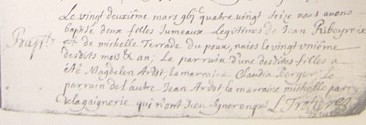 Le vingt deuzième mars gbi quatre vingt seize nous avons
Bapt. baptisé deux filles Jumeaux Legitimes de Jean Ribeyreix
et de michelle Terrade du poux, naies le vingt unième
desdits mois & an; Le parruin d'une desdittes filles a
été Magdelen Ardet, la marraine Claudia Borger. Le
parruin de l'autre Jean Ardet, la marraine michelle parry
de la gaignerie, qui n'ont signé